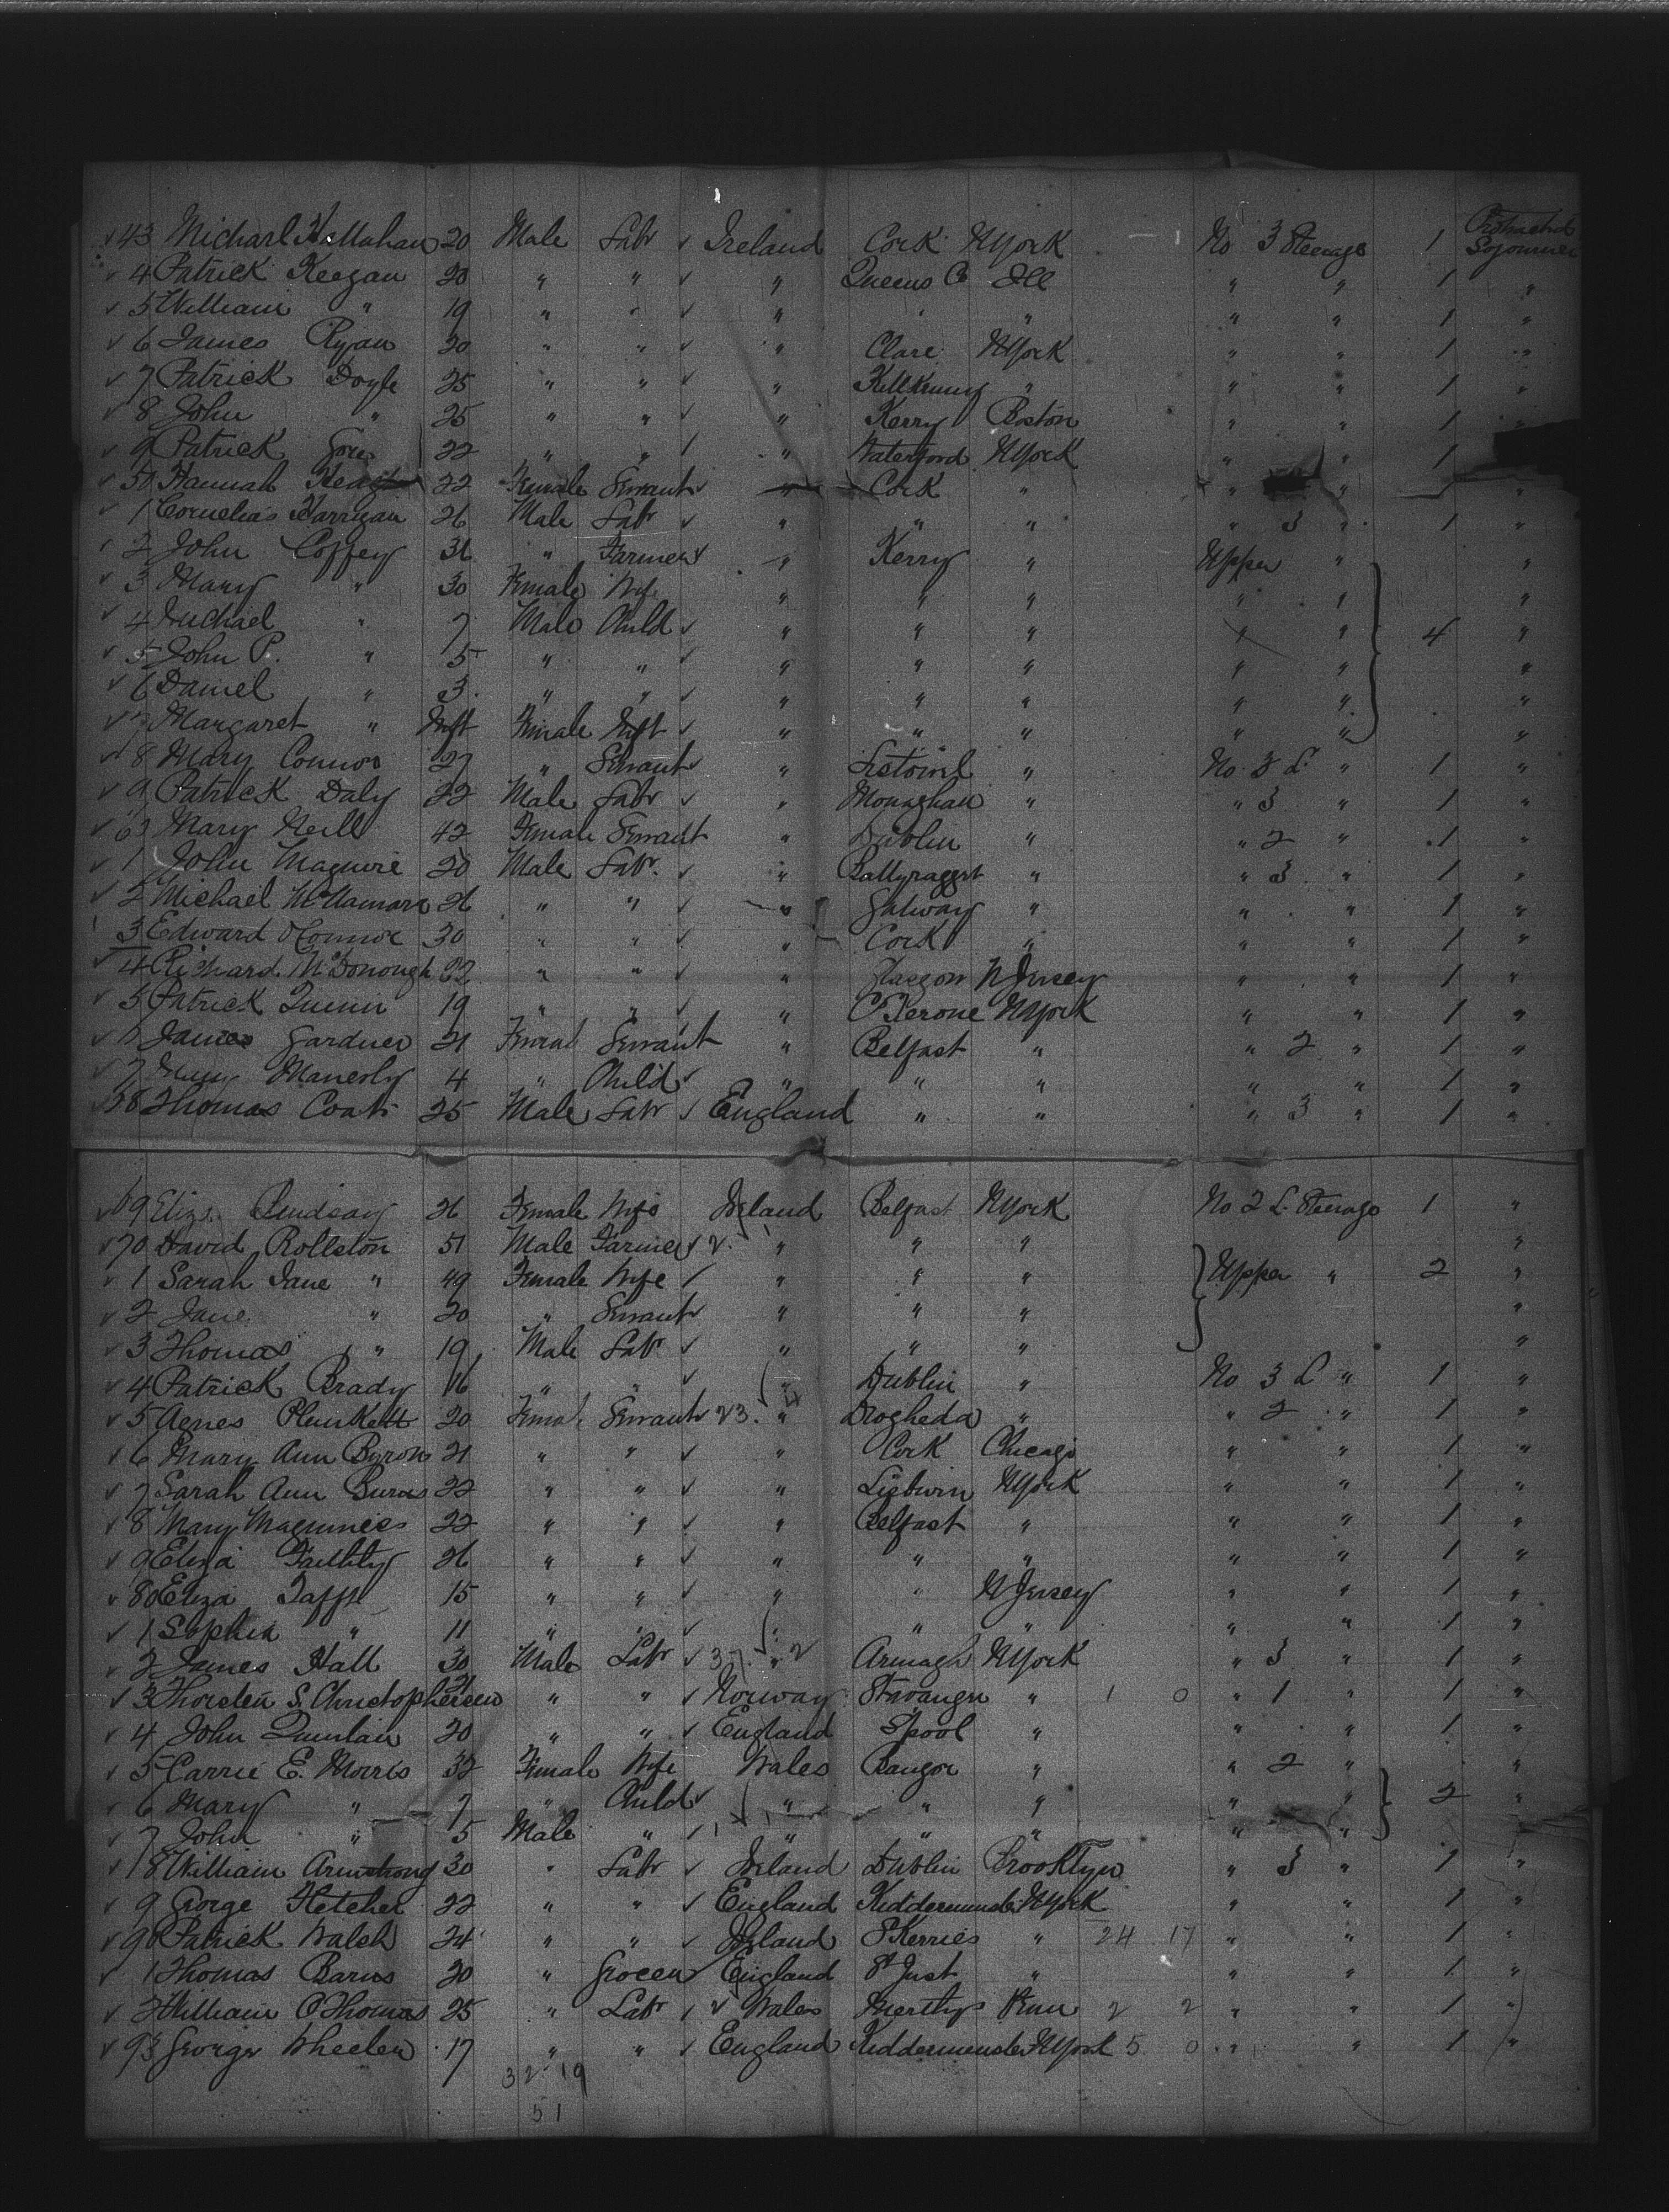 43 Michael 20 Male Labr Ireland Cork NYork No 3 Steerage 1 Protracted Sojourner
4 Patrick Keegan 20 " " " Queens Co Ill " " 1 "
5 William " 19 " " " " " " " 1 "
6 James Ryan 20 " " " Clare NYork " " 1 "
7 Patrick Doyle 25 " " " Killkenny " " " 1 "
8 John " 25 " " " Kerry Boston " " 1 "
9 Patrick 22 " " " Waterford NYork " " 1
50 Hannah 22 Female Servant " Cork " " " 1 "
1 Cornelias Harrigan 26 Male Labr " " " " 3 " 1 "
2 John Coffey 31 " Farmer " Kerry " Upper " "
3 Mary " 30 Female Wife " " " " " "
4 Michael " 7 Male Child " " " " " 4 "
5 John P. " 5 " " " " " " " "
6 Daniel " 3 " " " " " " " "
7 Margaret " Inft Female Inft " " " " " "
8 Mary Connor 27 " Servant " Listowel " No 3 L. " 1 "
9 Patrick Daly 22 Male Labr " Monaghan " " 3 " 1 "
60 Mary Neill 42 Female Servant " Dublin " " 2 " 1 "
1 John Maguire 20 Male Labr. " Ballyraggett " " 3 " 1 "
2 Michael McNamara 26 " " " Galway " " " 1 "
3 Edward OConnor 30 " " " Cork " " " 1 "
4 Richard McDonough 22 " " " Glasgow N Jersey " " 1 "
5 Patrick Quinn 19 " " " NYork " " 1 "
James Gardner 21 Femal Servant " Belfast " " 2 " 1 "
7 4 " Child " " " " " 1 "
68 Thomas Coats 25 Male Labr England " " " 3 " 1 "
69 Eliza Lindsay 26 Female Wife Ireland Belfast NYork No 2 L. Steerage 1 "
70 David Rollston 51 Male Farmer 2 " " " "
1 Sarah Jane " 49 Female Wife " " " Upper " 2 "
2 Jane " 20 " Servant " " " "
3 Thomas " 19 Male Labr " " " "
4 Patrick Brady 16 " " " Dublin " No 3 L " 1 "
5 Agnes Plunkett 20 Femal Servant 23 " Drogheda " " 2 " 1 "
6 Mary Ann Byron 21 " " " Cork Chicago " " 1 "
7 Sarah Ann Burns 22 " " " NYork " " 1 "
8 Mary Maguiness 22 " " " Belfast " " " 1 "
9 Eliza 26 " " " " " " " 1 "
80 Eliza Tafft 15 " " " " N Jersey " " 1 "
1 Sophia " 11 " " " " " " " 1 "
2 James Hall 30 Male Labr 37 " 2 Armagh NYork " 3 " 1 "
3 Thorsten S. Christophersen 21 " " Norway Stavanger " 1 0 " 1 " 1 "
4 John Quinlan 20 " " England Lpool " " " 1 "
5 Carrie E. Morris 32 Female Wife Wales Bangor " " 2 " "
6 Mary " 7 " Child " " " " " 2 "
7 John " 5 Male " 1 1 " " " " "
8 William Armstrong 30 " Labr Ireland Dublin Brooklyn " 3 " 1 "
9 George Fletcher 22 " " England Kidderminster NYork " " 1 "
90 Patrick Walsh 24 " " Ireland SKerries " 24 17 " " 1 "
1 Thomas Barns 20 " Grocer England St Just " " " 1 "
2 William O Thomas 25 " Labr Wales Merthyr Penn 2 2 " " 1 "
93 George Wheeler 17 " " England Kidderminster NYork 5 0 " " 1 "
32 19
51